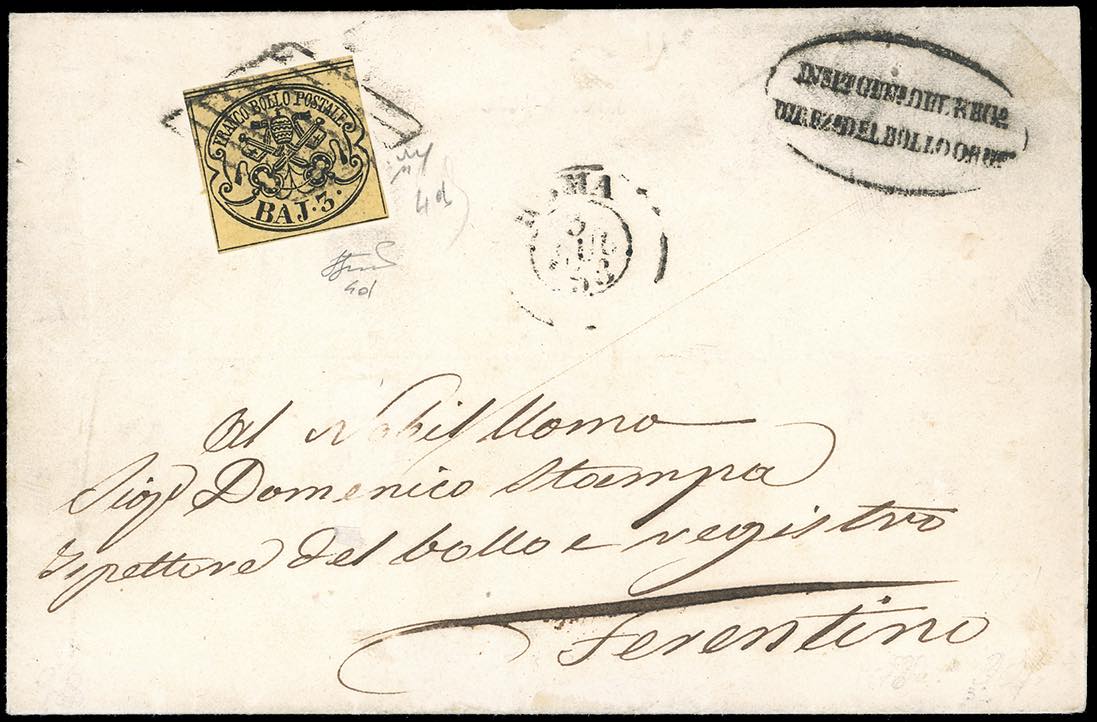 FRANCO BOLLO POSTALE
BAJ. 3.
4d
4d
ROMA
3
53
DEL BOLLO
Al Nobil Uomo
Sigr Domenico Stampa
Ispettore del bollo e registro
Ferentino